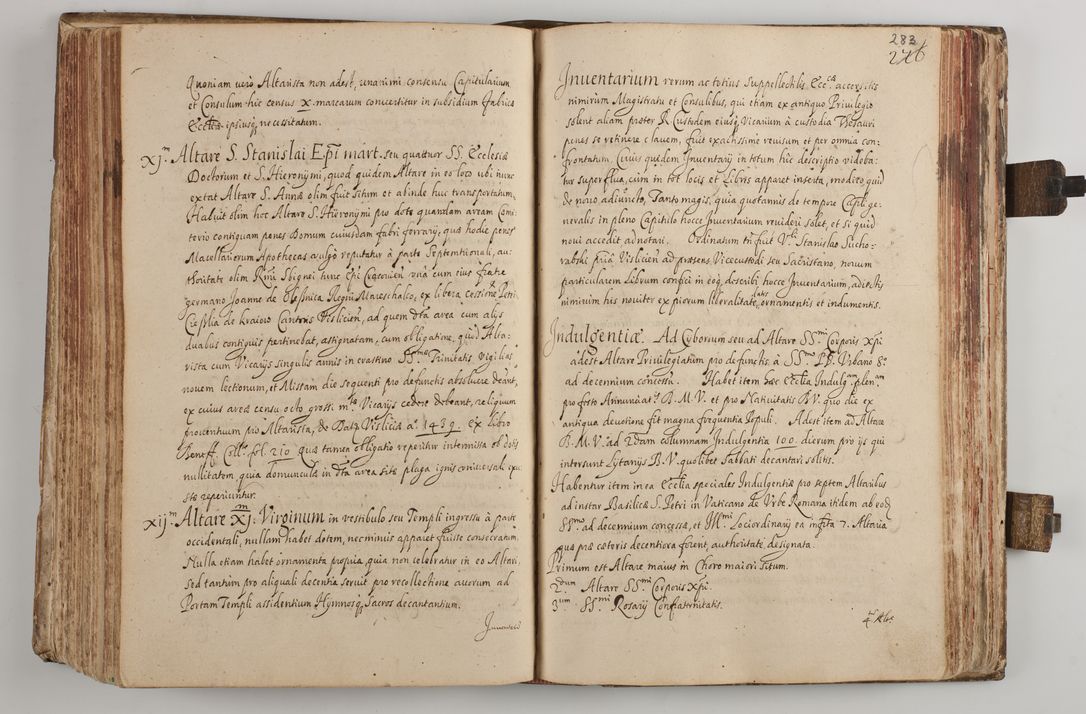 Quoniam vero Altarista non adest, unanimi consensu Capitularium
et Consulum hic census X. marcarum convertitur in subsidium fabricæ
Ecctiæ ipsiusq, necessitatum.
XJ.m Altare S. Stanislai Epi mart. seu quattuor SS. Ecclesiæ
Doctorum et S. Hieronymi, quod quidem Altare in eo loco ubi nunc
extat Altare S. Annæ olim fuit situm et abinde huc transportatum.
Habuit olim hoc Altare S. Hieronymi pro dote quandam aream Cœmi-
torio contiguam penes Domum cuiusdam fabri ferrarij, quæ hodie penes
Macellariorum Apothecas vulgo reputatur à parte Septemtrionali, au-
thoritate olim Rmi Sbignei tunc Epi Cracovien una cum eius fratre
germano Joanne de Olesnica Regni Mareschalco, ex libera cessione Petri
de Kraiow Cantoris Vislicien, ad quem dta area cum alijs
duabus contiguis pertinebat, assignatam, cum obligatione, quod Alta-
rista cum Vicarijs singulis annis in crastino SSmæ Trinitatis Vigilias
novem lectionum, et Missam die sequenti pro defunctis absolvere debeant,
ex cuius areæ censu octo grossi mtis Vicarijs cedere debeant, reliquum
proventuum pro Altarista, de Data Visliciæ ao 1439. ex Libro
Beneff. Coll. fol. 210 quæ tamen obligatio reperitur intermissa ob dotis
nullitatem, quia domuncula in dta area sitæ plaga ignis universali exu-
stæ reperiuntur.
XIJ.m Altare XJ.m Virginum in vestibulo seu Templi ingressu à parte
occidentali, nullam habet dotem, nec minus apparet fuisse consecratum.
Nulla etiam habet ornamenta propria, quia non celebratur in eo Altari,
sed tantum pro aliquali decentia servit pro recollectione avorum ad
Portam Templi assidentium Hymnosq, sacros decantantium.
283
246
Inventarium rerum ac totius Suppellectilis Eccæ accersitis
nimirum Magistratu et Consulibus, qui etiam ex antiquo Privilegio
solent aliam præter R. Custodem eiusq, Vicarium à custodia Thesauri
penes se retinere clavem, fuit exactissime revisum et per omnia con-
frontatum, Cuius quidem Inventarij in totum hic descriptio videba-
tur superflua, cum in tot locis et Libris apparet inserta, modico quid
de novo adiuncto, Tanto magis, quia quotannis de tempore Capli ge-
neralis in pleno Capitulo hocce Inventarium revideri solet, et si quid
novi accedit adnotari. Ordinatum tn fuit Stanislao Sucho-
rabski Vislicien ad præsens Vicecustodi seu Sacristano, novum
particularem Librum confici in eoq, describi hocce Inventarium, adiectis
nimirum his noviter ex piorum liberalitate datis ornamentis et indumentis.
Indulgentiæ. Ad Cyborium seu ad Altare SSmi Corporis Xpi
adest Altare Privilegiatum pro defunctis à SSmo PP. Urbano 8o
ad decennium concessu. Habet item hæc Ecclia Indulgam plenam
pro festo Annunciatis B. M. V. et pro Nativitatis B. V. quo die ex
antiqua devotione fit magna frequentia Populi. Adest item ad Altare
B. M. V. ad 2dam columnam Indulgentia 100. dierum pro ijs qui
intersunt Lytanijs B. V. quolibet Sabbati decantari solitis.
Habentur item in ea Ecclia speciales Indulgentiæ pro septem Altaribus
ad instar Basilicæ S. Petri in Vaticano de Urbe Romana itidem ab eod
SSmo ad decennium concessa, et Illmi Loci ordinarij ea infta 7. Altaria
quæ præ cæteris decentiora forent, authoritate designata.
Primum est Altare maius in Choro maiori situm.
2dum Altare SSmi Corporis Xpi.
3um SSmi Rosarij Confraternitatis.